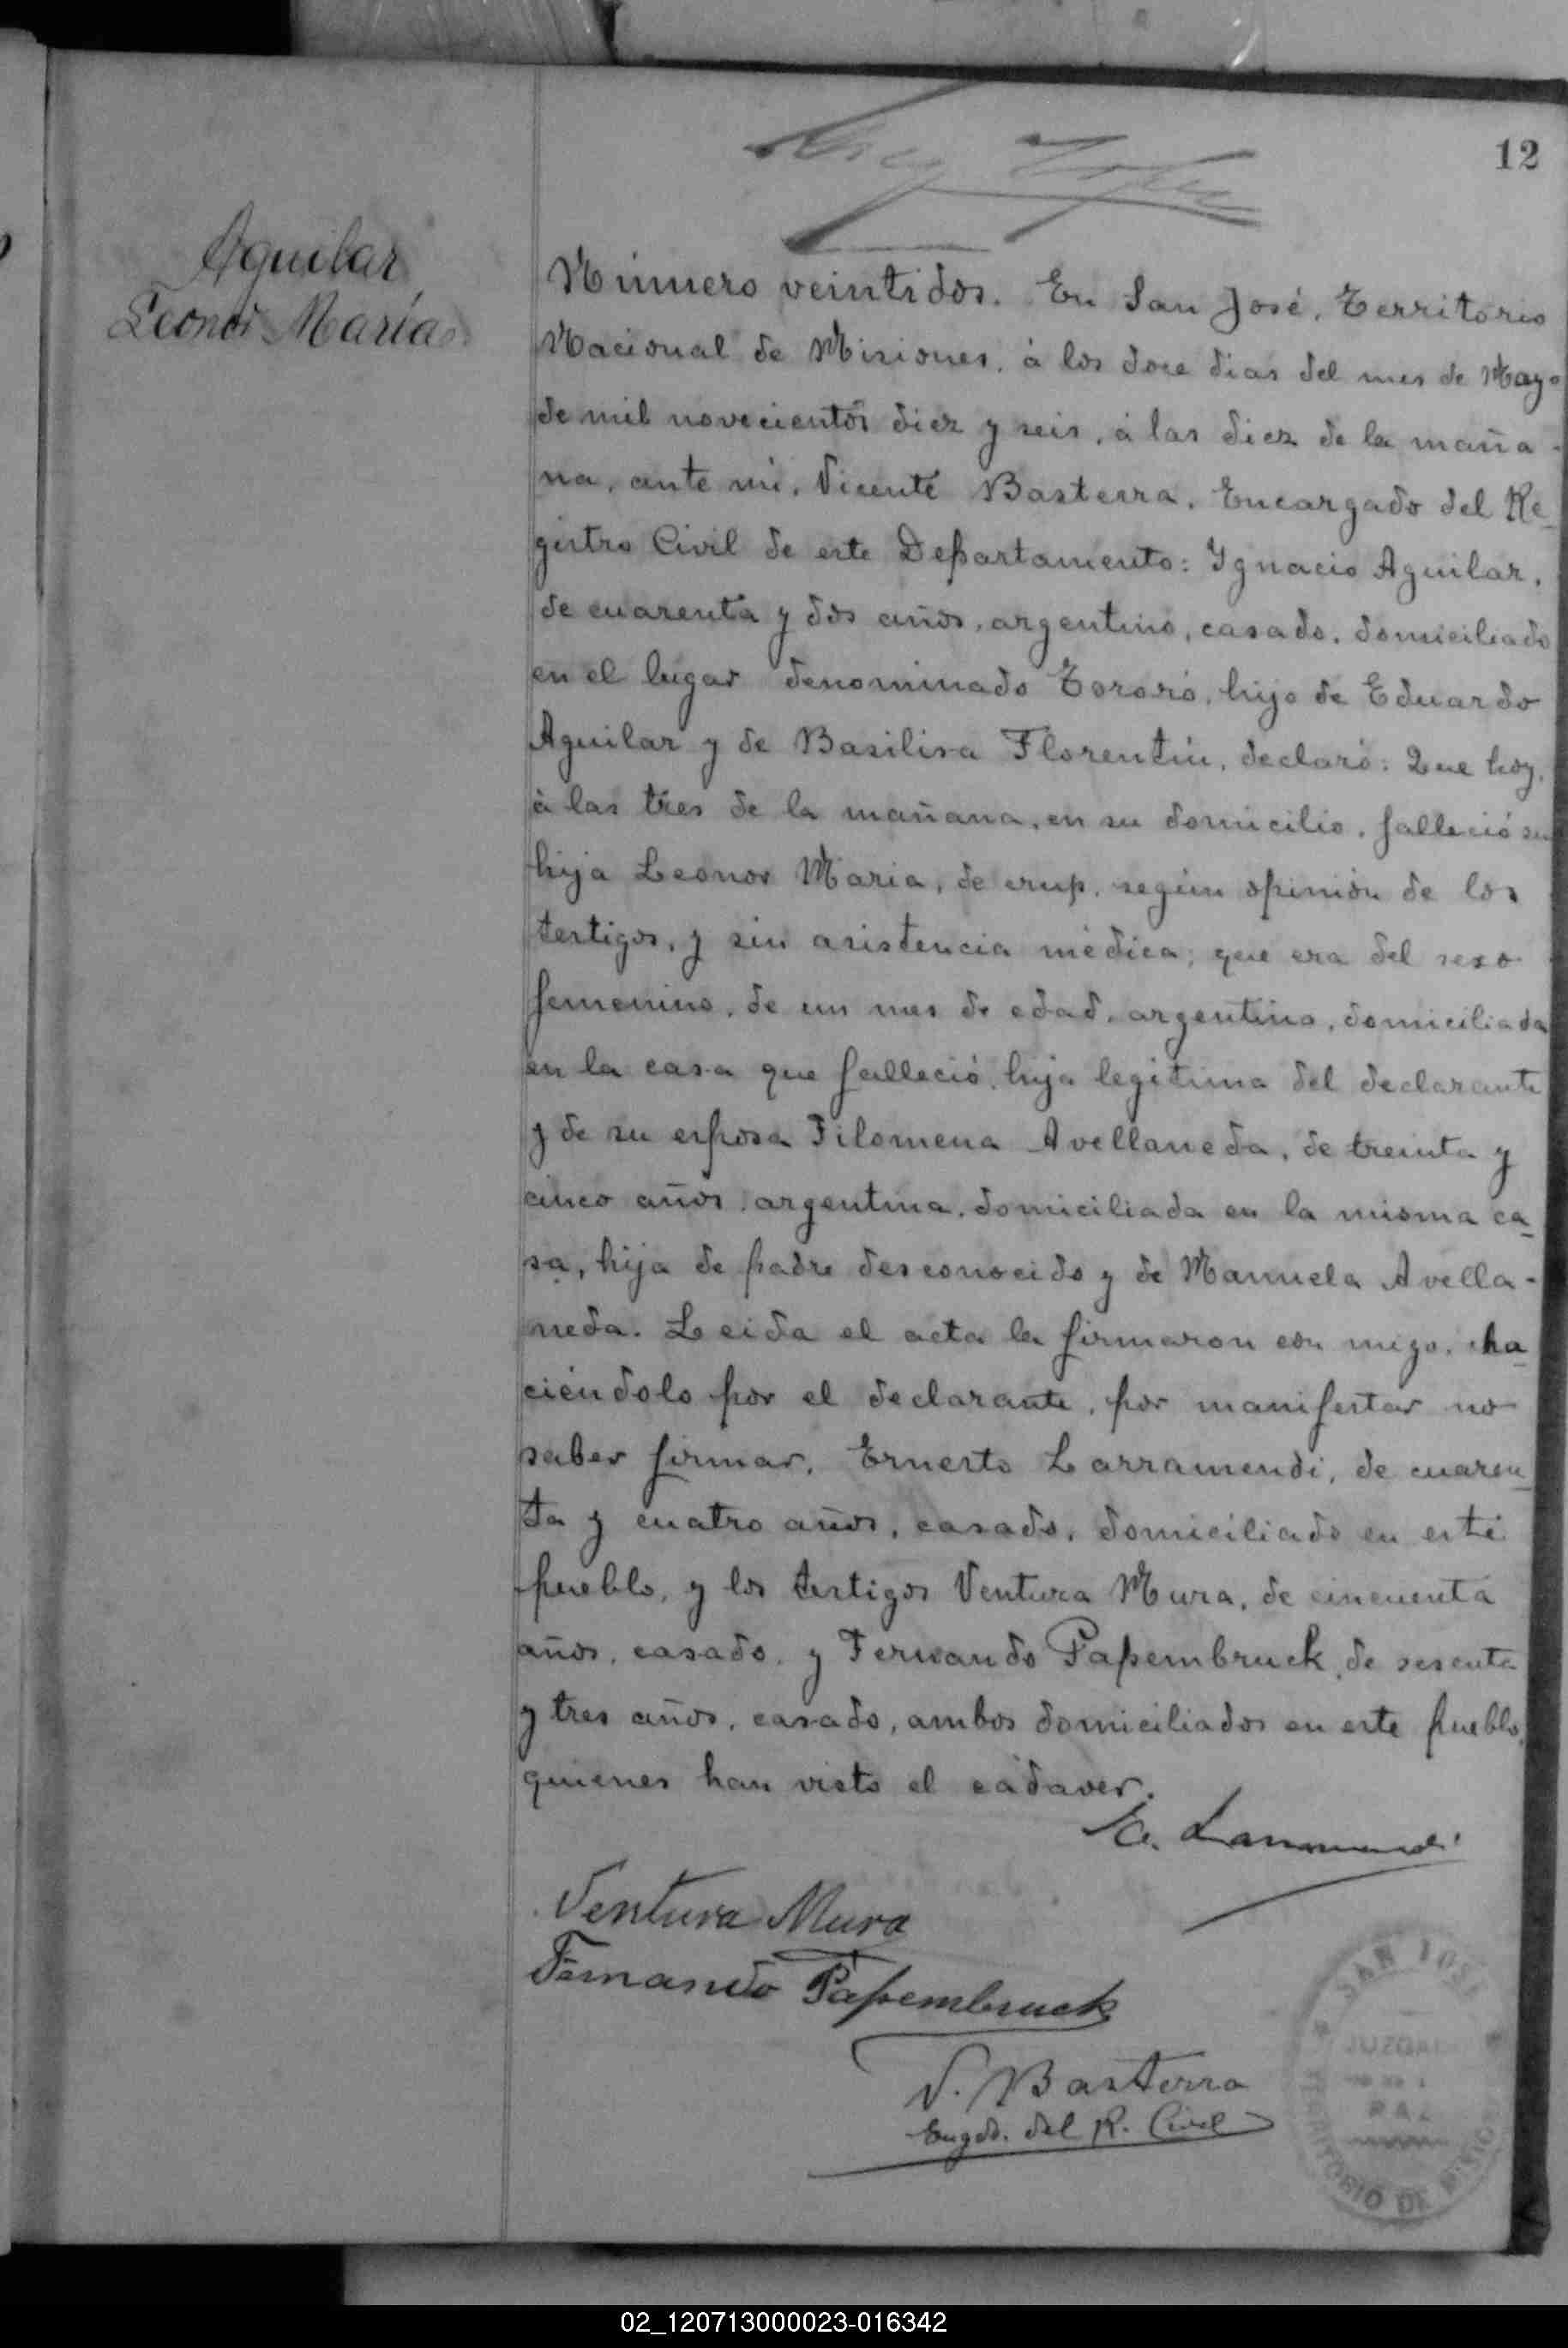 12
Aguilar
Leonor María
Número veintidos. En San José, Territorio
Nacional de Misiones, á los doce dias del mes de Mayo
de mil novecientos diez y seis, á las diez de la maña-
na, ante mi, Vicente Basterra, Encargado del Re-
gistro Civil de este Departamento: Ygnacio Aguilar,
de cuarenta y dos años, argentino, casado, domiciliado
en el lugar denominado Tororó, hijo de Eduardo
Aguilar y de Basilisa Florentin, declaró: Que hoy,
á las tres de la mañana, en su domicilio, falleció su
hija Leonor Maria, de crup, según opinión de los
testigos, y sin asistencia médica; que era del sexo
femenino, de un mes de edad, argentina, domiciliada
en la casa que falleció, hija legitima del declarante
y de su esposa Filomena Avellaneda, de treinta y
cinco años, argentina, domiciliada en la misma ca-
sa, hija de padre desconocido y de Manuela Avella-
neda. Leida el acta la firmaron con migo, ha-
ciéndolo por el declarante, por manifestar no
saber firmar, Ernesto Larramendi, de cuaren-
ta y cuatro años, casado, domiciliado en este
pueblo, y los testigos Ventura Mura, de cincuenta
años, casado, y Fernando Papembruck, de sesenta
y tres años, casado, ambos domiciliados en este pueblo,
quienes han visto el cádaver.
E. Larramendi
Ventura Mura
Fernando Papembruck
V. Basterra
Engdo. del R. Civil
SAN JOSÉ
JUZGADO
PAZ
TERRITORIO DE MISIONES
02_120713000023-016342